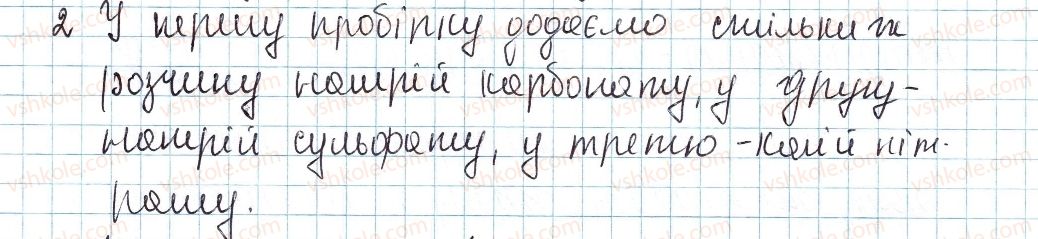 2 У першу пробірку додаємо стільки ж
розчину натрій карбонату, у другу-
натрій сульфату, у третю -калій ніт-
рату.